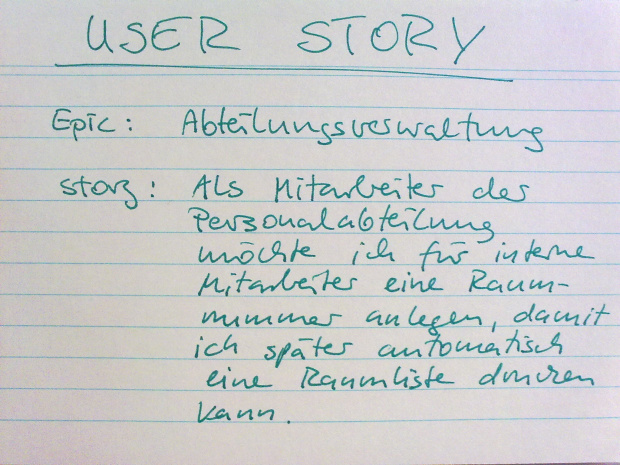 USER STORY
Epic: Abteilungsverwaltung
Story: Als Mitarbeiter der
Personalabteilung
möchte ich für interne
Mitarbeiter eine Raum-
nummer anlegen, damit
ich später automatisch
eine Raumliste drucken
kann.